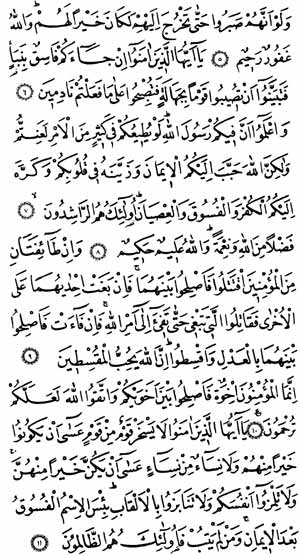 وَلَوْ أَنَّهُمْ صَبَرُوا حَتَّىٰ تَخْرُجَ إِلَيْهِمْ لَكَانَ خَيْرًا لَهُمْ وَاللَّهُ
غَفُورٌ رَحِيمٌ ٥ يَا أَيُّهَا الَّذِينَ آمَنُوا إِنْ جَاءَكُمْ فَاسِقٌ بِنَبَأٍ
فَتَبَيَّنُوا أَنْ تُصِيبُوا قَوْمًا بِجَهَالَةٍ فَتُصْبِحُوا عَلَىٰ مَا فَعَلْتُمْ نَادِمِينَ ٦
وَاعْلَمُوا أَنَّ فِيكُمْ رَسُولَ اللَّهِ لَوْ يُطِيعُكُمْ فِي كَثِيرٍ مِنَ الْأَمْرِ لَعَنِتُّمْ
وَلَٰكِنَّ اللَّهَ حَبَّبَ إِلَيْكُمُ الْإِيمَانَ وَزَيَّنَهُ فِي قُلُوبِكُمْ وَكَرَّهَ
إِلَيْكُمُ الْكُفْرَ وَالْفُسُوقَ وَالْعِصْيَانَ أُولَٰئِكَ هُمُ الرَّاشِدُونَ ٧
فَضْلًا مِنَ اللَّهِ وَنِعْمَةً وَاللَّهُ عَلِيمٌ حَكِيمٌ ٨ وَإِنْ طَائِفَتَانِ
مِنَ الْمُؤْمِنِينَ اقْتَتَلُوا فَأَصْلِحُوا بَيْنَهُمَا فَإِنْ بَغَتْ إِحْدَاهُمَا عَلَى
الْأُخْرَىٰ فَقَاتِلُوا الَّتِي تَبْغِي حَتَّىٰ تَفِيءَ إِلَىٰ أَمْرِ اللَّهِ فَإِنْ فَاءَتْ فَأَصْلِحُوا
بَيْنَهُمَا بِالْعَدْلِ وَأَقْسِطُوا إِنَّ اللَّهَ يُحِبُّ الْمُقْسِطِينَ ٩
إِنَّمَا الْمُؤْمِنُونَ إِخْوَةٌ فَأَصْلِحُوا بَيْنَ أَخَوَيْكُمْ وَاتَّقُوا اللَّهَ لَعَلَّكُمْ
تُرْحَمُونَ ١٠ يَا أَيُّهَا الَّذِينَ آمَنُوا لَا يَسْخَرْ قَوْمٌ مِنْ قَوْمٍ عَسَىٰ أَنْ يَكُونُوا
خَيْرًا مِنْهُمْ وَلَا نِسَاءٌ مِنْ نِسَاءٍ عَسَىٰ أَنْ يَكُنَّ خَيْرًا مِنْهُنَّ
وَلَا تَلْمِزُوا أَنْفُسَكُمْ وَلَا تَنَابَزُوا بِالْأَلْقَابِ بِئْسَ الِاسْمُ الْفُسُوقُ
بَعْدَ الْإِيمَانِ وَمَنْ لَمْ يَتُبْ فَأُولَٰئِكَ هُمُ الظَّالِمُونَ ١١